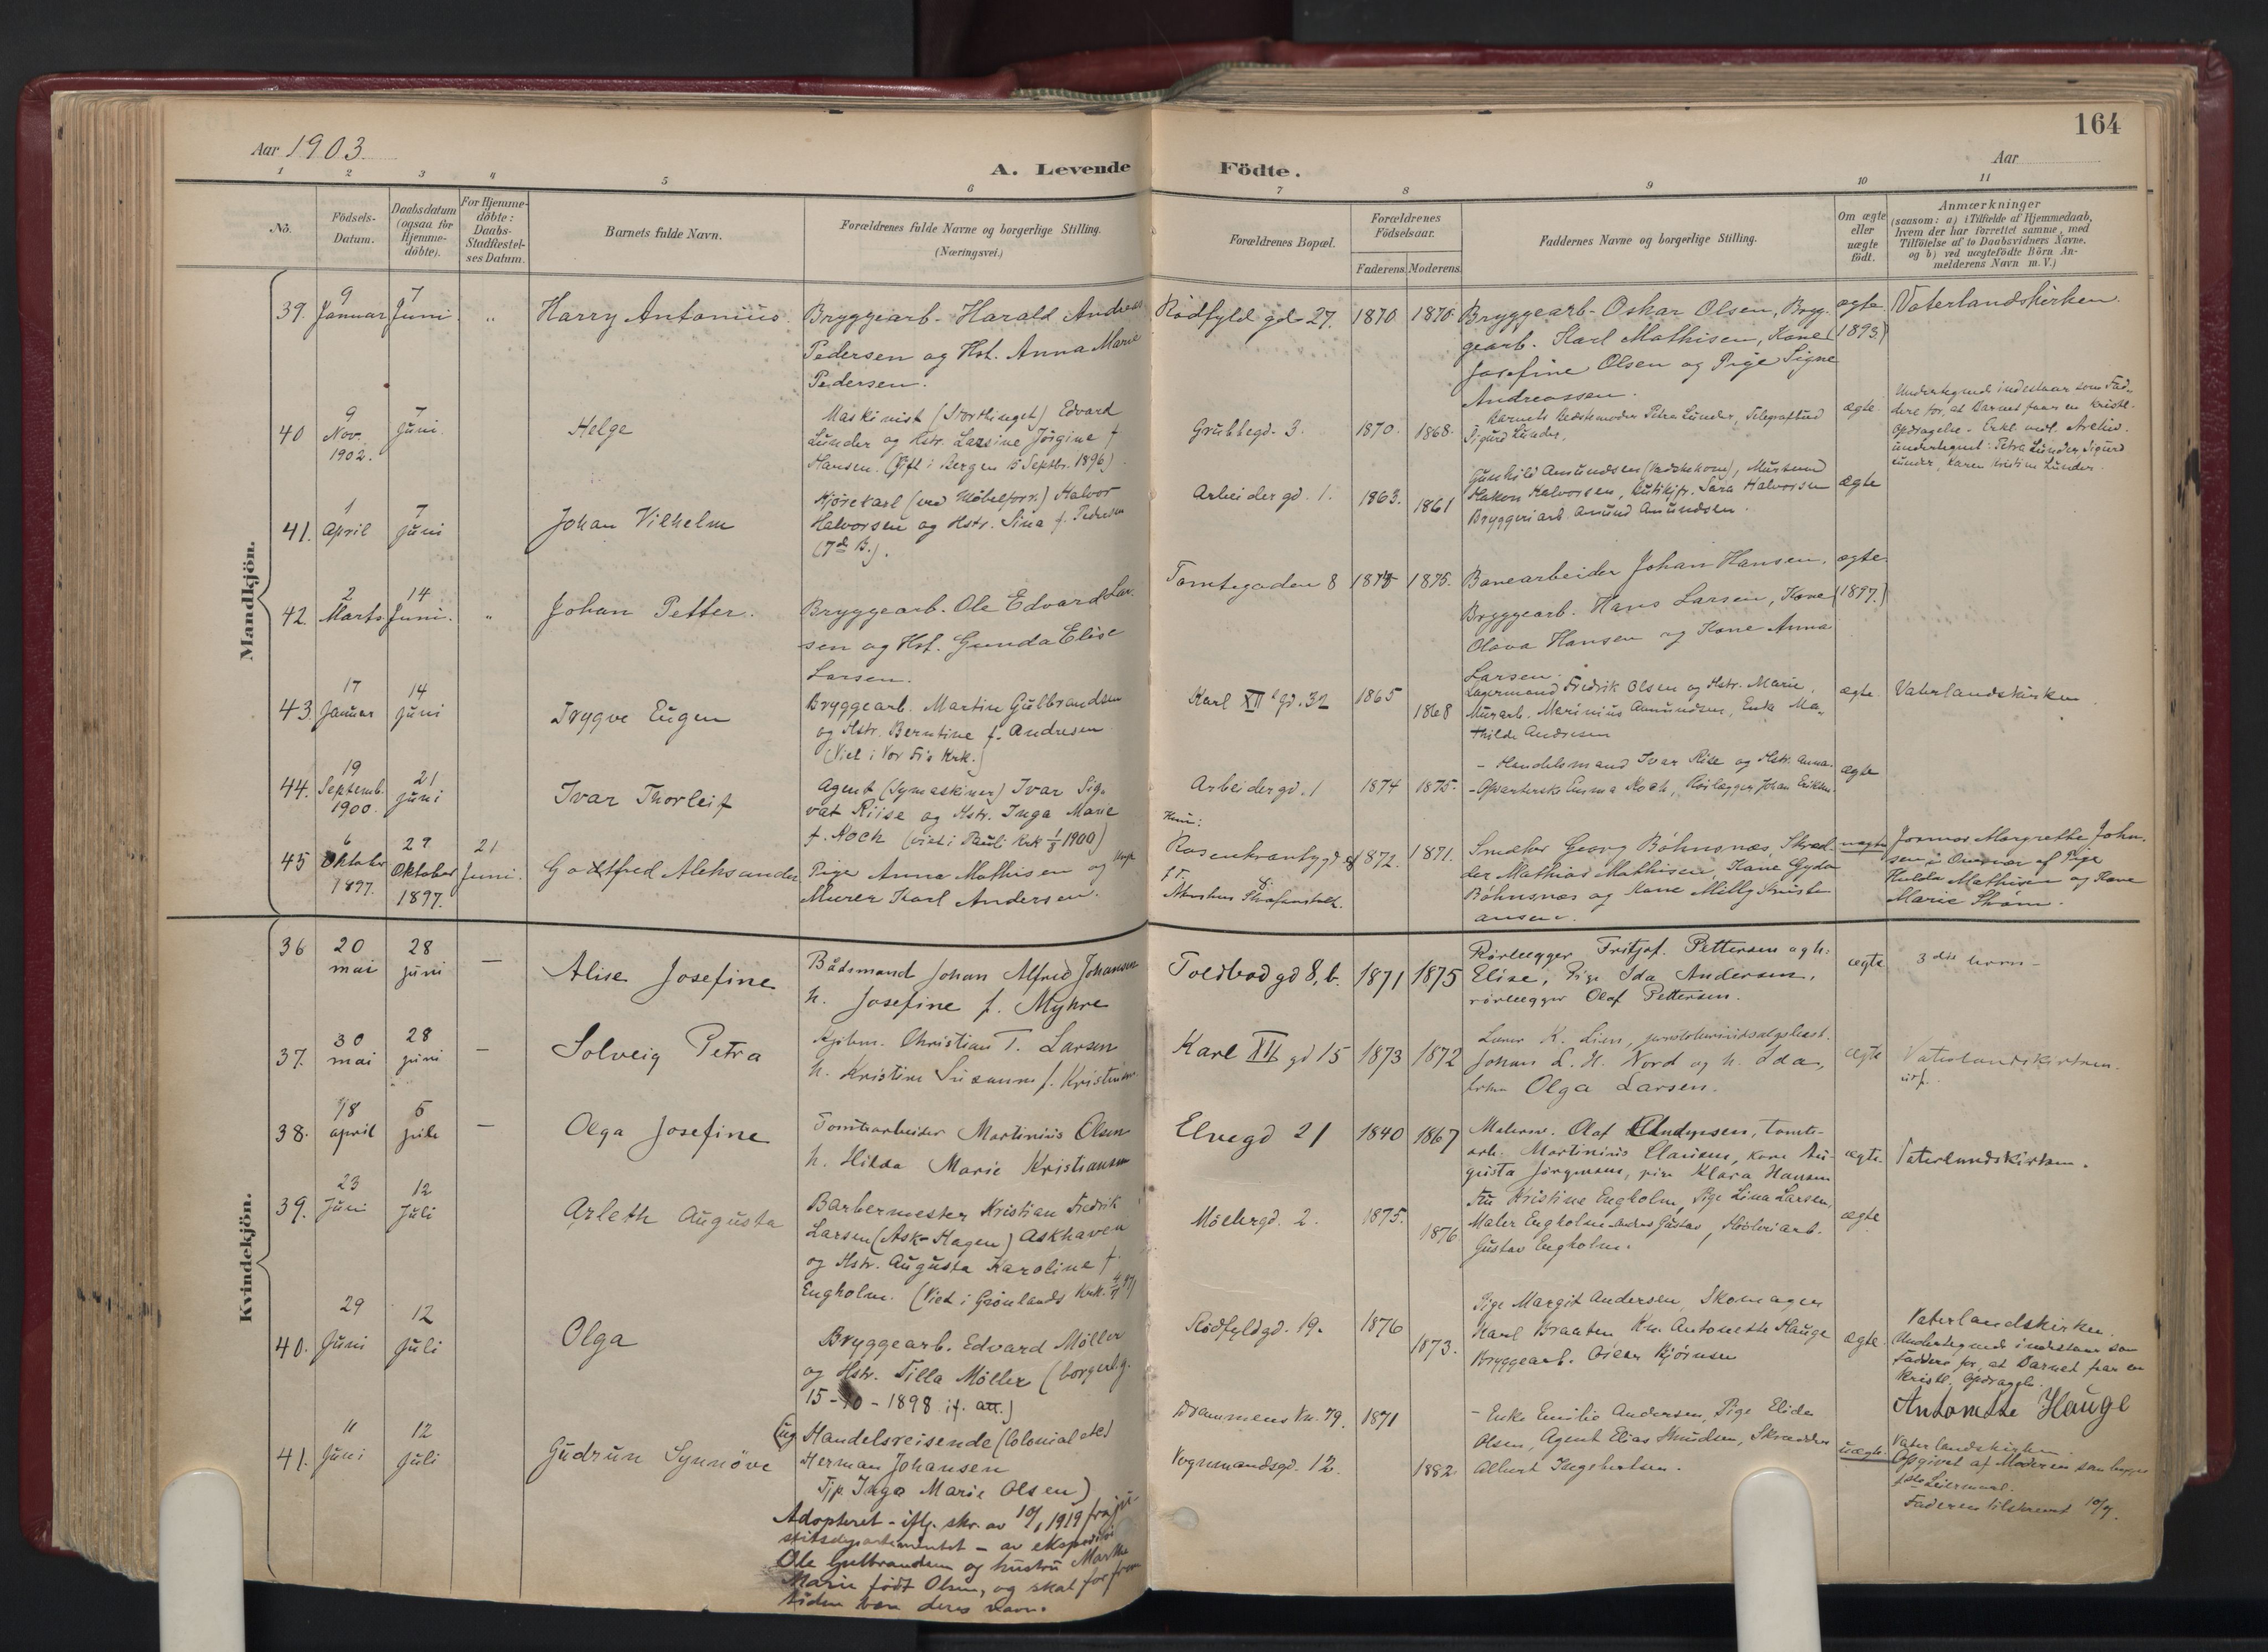 164
Aar 1903.
Aar
A. Levende Födte.
1 2 3 4 5 6 7 8 9 10 11
No.
Födsels-Datum.
Daabsdatum (ogsaa for Hjemme-döbte).
For Hjemme-döbte: Daabs-Stadfæstel-ses Datum.
Barnets fulde Navn.
Forældrenes fulde Navne og borgerlige Stilling.
(Næringsvei.)
Forældrenes Bopæl.
Forældrenes Födselsaar.
Faderens. Moderens.
Faddernes Navne og borgerlige Stilling.
Om ægte eller uægte födt.
Anmærkninger
(saasom: a) i Tilfælde af Hjemmedaab,
hvem der har forrettet samme, med
Tilföielse af to Daabsvidners Navne,
og b) ved uægtefödte Börn An-
melderens Navn m. V.)
Mandkjön.
39. 9 Januar 7 Juni. „ Harry Antonius. Bryggearb. Harald Andreas
Pedersen og Hst. Anna Marie
Pedersen.
Rödfyld gd. 27. 1870 1870 Bryggearb. Oskar Olsen, Bryg-
gearb. Karl Mathisen, Kone
Josefine Olsen og Pige Signe
Andreassen.
ægte (1893.) Vaterlandskirken.
40 9 Nov. 1902. 7 Juni. Helge
Maskinist (Storthinget) Edvard
Lunder og Hstr. Larsine Jörgine f.
Hansen. (Gift i Bergen 15 Septbr. 1896)
Grubbegd. 3. 1870. 1868.
Barnets Bedstemoder Petra Lunder, Telegrafbud
Sigurd Lunder.
ægte
Undertegnede indestaar som Fad-
dere for, at Barnet faar en kristl.
Opdragelse. Erkl. vedl. Archiv.
undertegnet: Petra Lunder, Sigurd
Lunder, Karen Kristine Lunder.
41. 1 April 7 Juni Johan Vilhelm
Kjørekarl (ved Möbelforr.) Halvor
Halvorsen og Hstr. Sina f. Pedersen
(7de B.).
Arbeidergd. 1. 1863. 1861
Gunhild Amundsen, Murmand
Hakon Halvorsen, Butikjfr. Sara Halvorsen
Bryggeriarb. Amund Amundsen.
ægte
42. 2 Marts 14 Juni. „ Johan Petter.
Bryggearb. Ole Edvard Lar-
sen og Hst. Gunda Elise
Larsen.
Tomtegaden 8 1875.
Banearbeider Johan Hansen,
Bryggearb. Hans Larsen, Kone
Olava Hansen og Kone Anna
Larsen.
ægte (1897.)
43. 17 Januar 14 Juni Trygve Eugen
Bryggearb. Martin Gulbrandsen
og Hstr. Berntine f. Andresen
(Viet i Vor Frs Krk.)
Karl XII gd. 32 1865 1868
Lagermand Fredrik Olsen og Hstr. Marie,
Murarb. Marinius Amundsen, Enke Ma-
thilde Andresen
ægte. Vaterlandskirken.
44. 19 Septemb. 1900. 21 Juni Ivar Thorleif
Agent (Symaskiner) Ivar Sig-
vat Riise og Hstr. Inga Marie
f. Koch (viet i Pauli Krk 1900)
Arbeidergd. 1 1874 1875.
- Handelsmand Ivar Riise og Hstr. Anna.
- Opvarterske Emma Koch, Rörlægger Johan Eriksen
ægte
45 6 Oktober 1897. 29 Oktober 1897. 21 Juni. Godtfred Aleksander
Pige Anna Mathisen og
Murer Karl Andersen.
Rosenkrantzgd.
Akershus Strafanstalt.
1872. 1871.
Smeder Georg Böhnsnæs, Skræd-
der Mathias Mathisen, Kone Gyda
Böhnsnæs og Kone Milly Kristi-
ansen.
uægte
Jormor Margrethe John-
sen i Overvær af Pige
Hulda Mathisen og Kone
Marie Ström.
Kvindekjön.
36 20 mai 28 juni — Alise Josefine
Bådsmand Johan Alfred Johansen
h. Josefine f. Myhre
Toldbodgd 8, b. 1871 1875
Rörlægger Fritjof Pettersen og h.
Elise, Pige Ida Andersen,
rörlægger Olaf Pettersen.
ægte 3die barn —
37. 30 mai 28 juni — Solveig Petra
Kjöbm. Christian T. Larsen
h. Kristine Susanne f. Kristensen
Karl XII gd 15 1873 1872
Lærer K. Lien,
Johan L. H. Nord og h. Ida,
Olga Larsen.
ægte Vaterlandskirken.
38. 18 april 5 juli — Olga Josefine
Tomtearbeider Martinius Olsen
h. Hilda Marie Kristiansen
Elvegd 21 1840 1867
Malersv. Olaf Andersen, tomte-
arb. Martinius Clausen, kone Au-
gusta Jörgensen, pige Klara Hansen
ægte. Vaterlandskirken.
39. 23 Juni 12 Juli Arleth Augusta
Barbermester Kristian Fredrik
Larsen (Ask-Hagen) Askhaven
og Hstr. Augusta Karoline f.
Engholm. (Viet i Grönlands Krk.
Möllergd. 2. 1875. 1876
Fru Kristine Engholm, Pige Lina Larsen,
Maler Engholm Anders Gustav, Hövleriarb.
Gustav Engholm.
ægte
40. 29 Juni 12 Juli Olga
Bryggearb. Edvard Möller
og Hstr. Tilla Möller (borgerlig.
15-10-1898 if. att.)
Rödfyldgd. 19. 1876 1873.
Pige Margit Andersen, Skomager
Karl Braaten Kn. Antonette Hauge
Bryggearb. Oscar Björnsen
ægte.
Vaterlandskirken.
Undertegnede indestaar som
Faddere for, at Barnet faar en
Kristl. Opdragelse.
Antonette Hauge
41. 11 Juni 12 Juli Gudrun Synnöve
(ug Handelsreisende (Colonial etc)
Herman Johansen
Tjp. Inga Marie Olsen)
Drammensvn. 79. 1871
Vognmandsgd. 12. 1882
- Enke Emilie Andersen, Pige Elida
Olsen, Agent Elias Knudsen, Skrædder
Albert Ingebretsen.
uægte.
Vaterlandskirken.
Opgivet af Moderen som begges
1ste Leiermaal.
Faderen tilskrevet 10/7.
Adopteret - iflg. skr. av 10/1 1919 fra ju-
stitsdepartementet - av ekspeditör
Ole Gulbrandsen og hustru Marthe
Marie födt Olsen, og skal for frem
tiden bære deres navn.